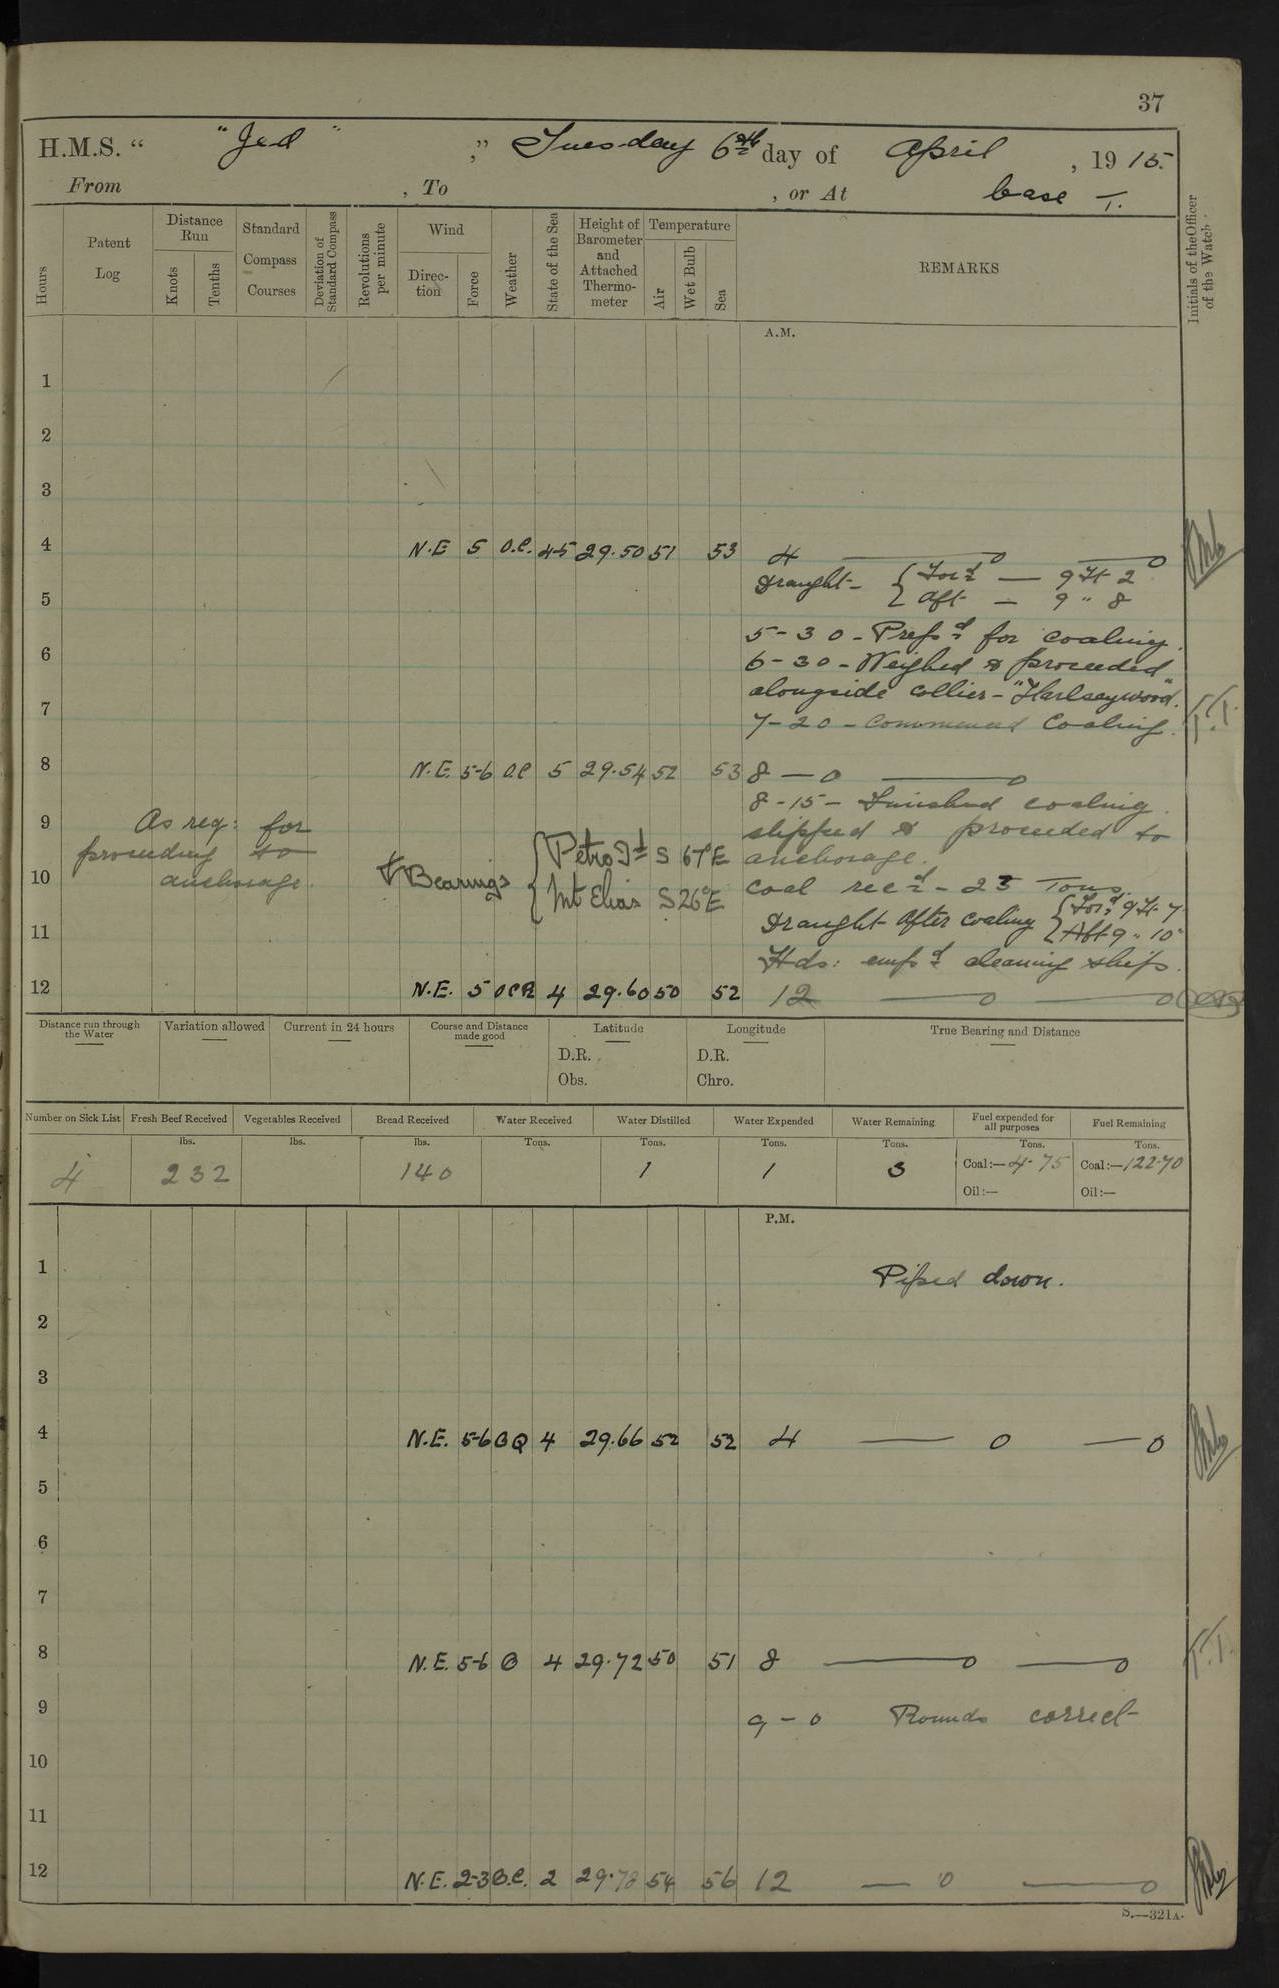 37
H.M.S. “ "Jed" ,” Tuesday 6th day of April , 19 15.
From , To , or At base T.
Hours
Patent Log
Distance Run
Knots
Tenths
Standard Compass Courses
Deviation of Standard Compass
Revolutions per minute
Wind
Direction
Force
Weather
State of the Sea
Height of Barometer and Attached Thermometer
Temperature
Air
Wet Bulb
Sea
REMARKS
Initials of the Officer of the Watch
A.M.
1
2
3
4 N.E 5 O.C. 4-5 29.50 51 53 4 — 0 — 0
Draught- { For'd — 9 Ft 2
5 { Aft — 9 " 8
5-30 - Prep'd for coaling.
6 6-30 - Weighed & proceeded
alongside collier - "Harlseywood".
7 7-20 - Commenced Coaling. T.T.
8 N.E. 5-6 O.C 5 29.54 52 53 8 — 0 — 0
8-15 - Finished coaling.
9 As req: for slipped & proceeded to
proceeding to { Petro Id S 67°E anchorage.
10 anchorage. Bearings { Mt Elias S 26°E Coal rec'd - 23 Tons.
Draught after coaling { For'd 9 Ft 7
11 { Aft 9 " 10
Hds: emp'd cleaning ship.
12 N.E. 5 OCR 4 29.60 50 52 12 — 0 — 0
Distance run through the Water
Variation allowed
Current in 24 hours
Course and Distance made good
Latitude
D.R.
Obs.
Longitude
D.R.
Chro.
True Bearing and Distance
Number on Sick List Fresh Beef Received Vegetables Received Bread Received Water Received Water Distilled Water Expended Water Remaining Fuel expended for all purposes Fuel Remaining
lbs. lbs. lbs. Tons. Tons. Tons. Tons. Tons. Tons.
4 232 140 1 1 3 Coal:— 4.75 Coal:— 122.70
Oil:— Oil:—
P.M.
1 Piped down.
2
3
4 N.E. 5-6 BQ 4 29.66 52 52 4 — 0 — 0
5
6
7
8 N.E. 5-6 B 4 29.72 50 51 8 — 0 — 0 T.T.
9 9-0 Rounds correct
10
11
12 N.E. 2-3 B.C. 2 29.78 54 56 12 — 0 — 0
S.—321A.